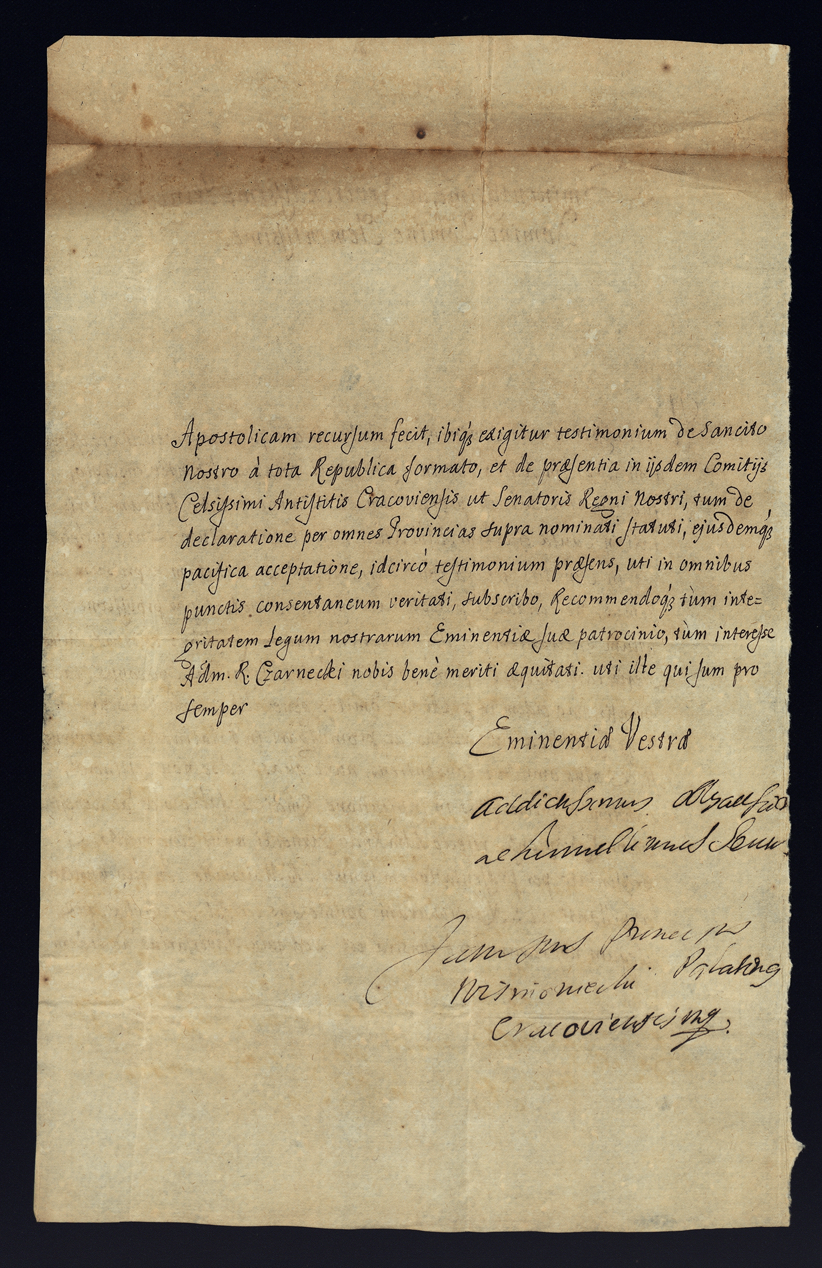 Apostolicam recursum fecit, ibiq́ꝫ exigitur testimonium de Sancito
Nostro à tota Republica formato, et de præsentia in ijsdem Comitijs
Celsissimi Antistitis Cracoviensis ut Senatoris Regni Nostri, tum de
declaratione per omnes Provincias supra nominati statuti, ejusdemq́ꝫ
pacifica acceptatione, idcircò testimonium præsens, uti in omnibus
punctis consentaneum veritati, subscribo, Recommendoq́ꝫ tùm inte=
gritatem Legum nostrarum Eminentiæ suæ patrocinio, tùm interesse
Adm. R. Czarnecki nobis benè meriti æquitati. uti ille qui sum pro
semper
Eminentiæ Vestræ
addictissimus
ac humillimus
Princeps
Palatinus
Cracoviensis mp.